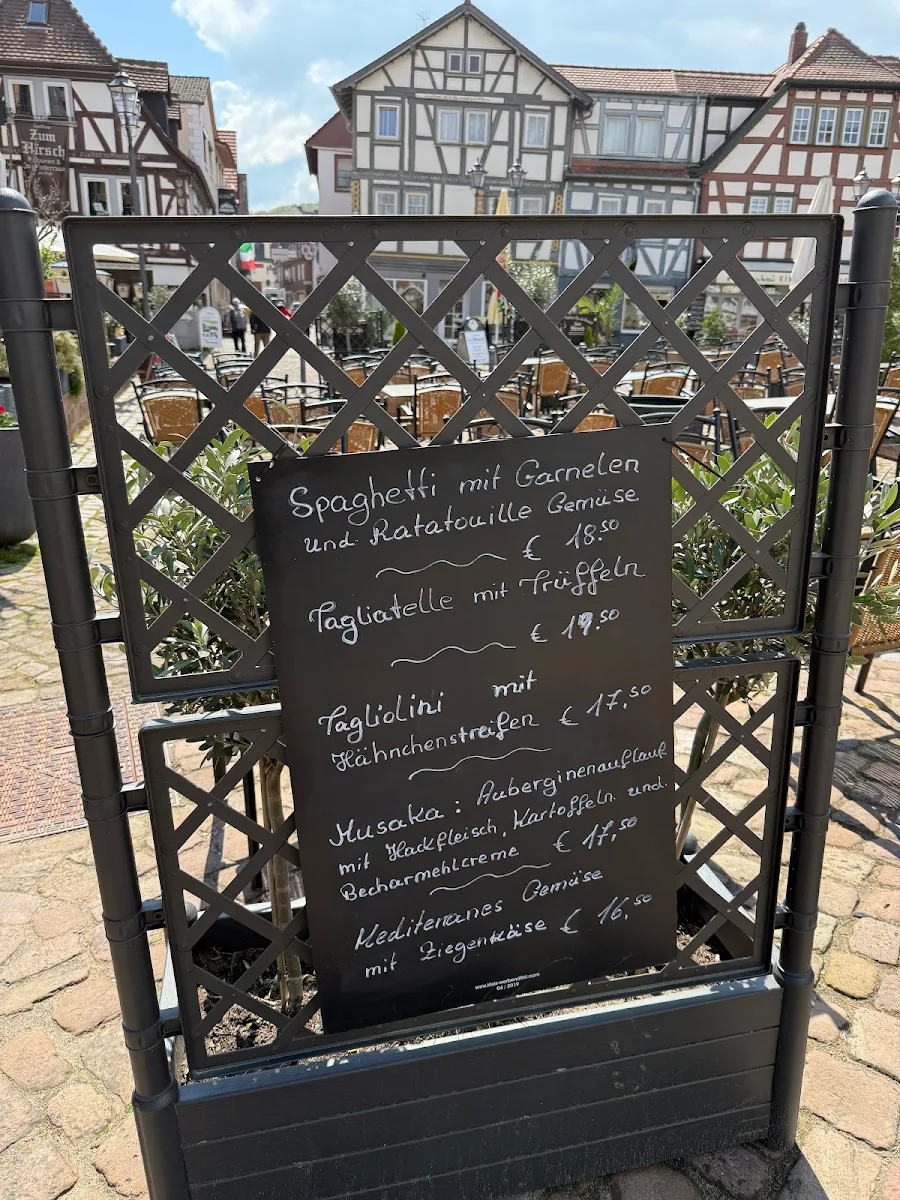 Zum
Hirsch
Spaghetti mit Garnelen
und Ratatouille Gemüse
€ 18.50
Tagliatelle mit Trüffeln
€ 19.50
Tagliolini mit
Hähnchenstreifen € 17,50
Musaka : Auberginenauflauf
mit Hackfleisch, Kartoffeln und.
Becharmehlcreme € 17,50
Mediteranes Gemüse
mit Ziegenkäse € 16,50
04 / 2019